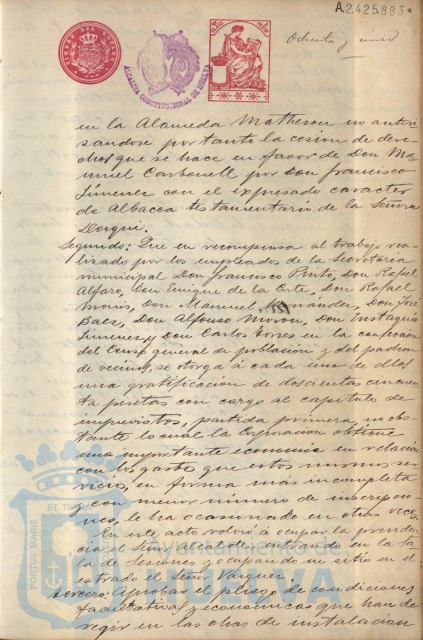 A.2.425.883*
TIMBRE DEL ESTADO
ALCALDIA CONSTITUCIONAL DE HUELVA
Ochenta y cinco
en la Alameda Matheson no autori-
sandose por tanto la cesion de dere-
chos que se hace en favor de Don Ma-
nuel Carbonell por Don Francisco
Jimenez con el expresado caracter
de Albacea testamentario de la Señora
Segundo: Que en recompensa al trabajo rea-
lizado por los empleados de la Secretaria
municipal Don Francisco Pinto, Don Rafael
Alfaro, Don Enrique de la Corte, Don Rafael
Don Manuel Hernández, Don José
Baez, Don Alfonso Moron, Don Eustaquio
Jimenez y Don Carlos Torres en la confección
del Censo general de población y del padron
de vecinos, se otorga á cada uno de ellos
una gratificacion de doscientas cincuen-
ta pesetas con cargo al capitulo de
imprevistos, partida primera, no obs-
tante lo cual la Corporacion obtiene
una importante economia en relación
con los gastos que estos mismos ser-
vicios, en forma mas incompleta
y con menor número de inscripcio-
nes, le ha ocasionado en otras veces.
En este acto volvió á ocupar la presiden-
cia el Señor Alcalde entrando en la Sa-
la de Sesiones y ocupando su sitio en el
estrado el Señor Vazquez.
Tercero: Aprobar el pliego de condiciones
facultativas y económicas que han de
regir en las obras de instalacion
PORTUS MARIS
ET TERRAE
Ayuntamiento de
HUELVA